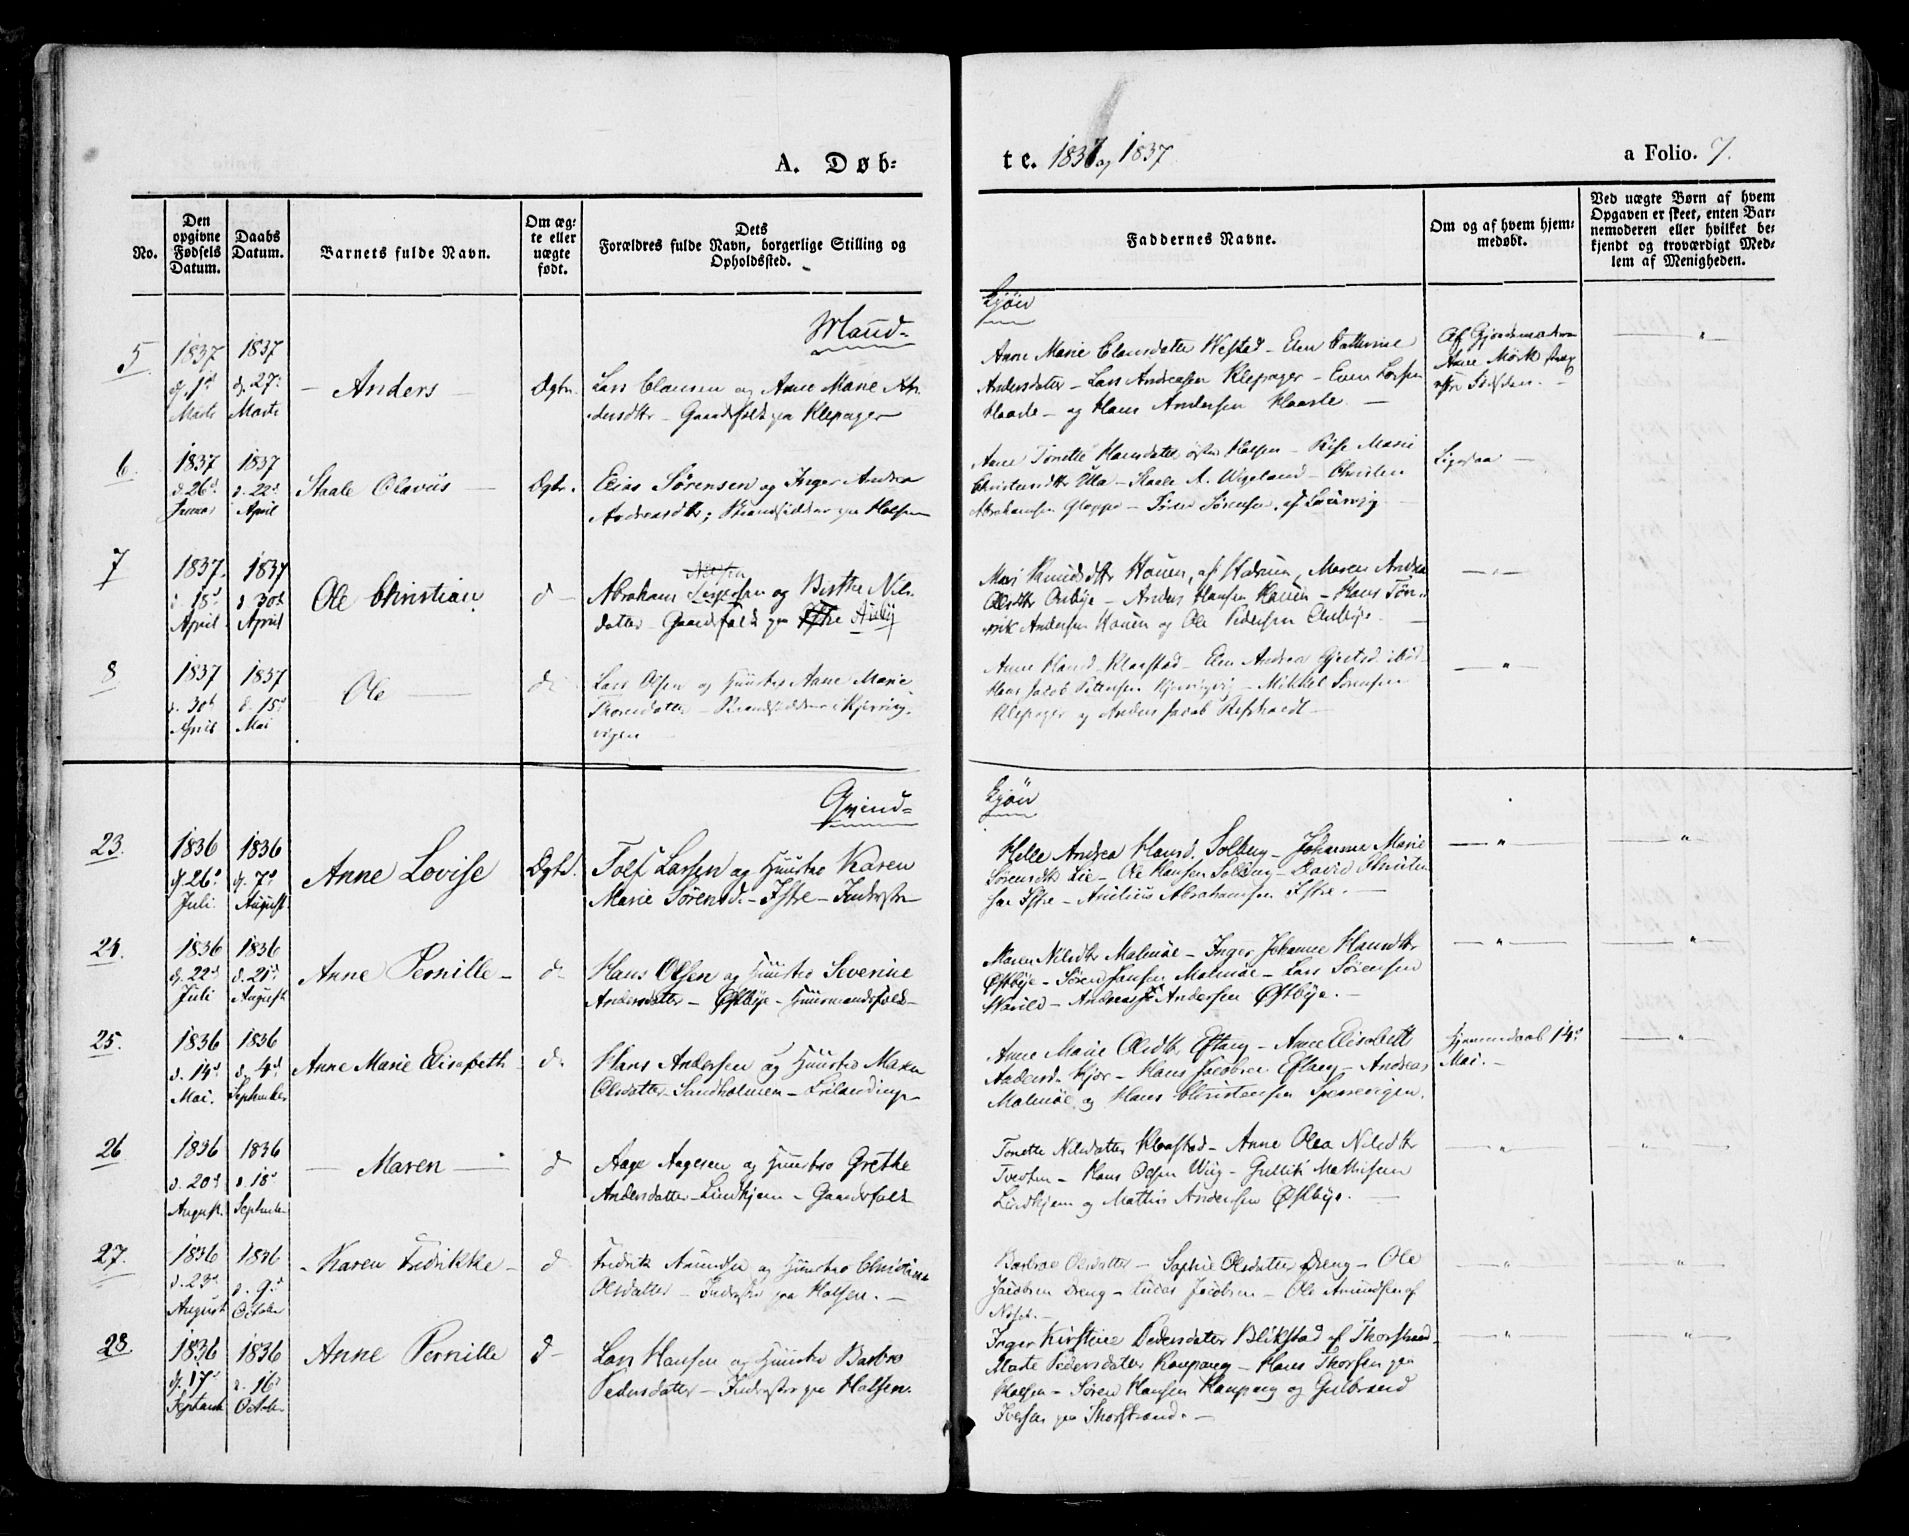 A. Døb-
te. 1836 og 1837
a Folio. 7.
No.
Den opgivne Fødsels Datum.
Daabs Datum.
Barnets fulde Navn.
Om ægte eller uægte født.
Dets Forældres fulde Navn, borgerlige Stilling og Opholdssted.
Faddernes Navne.
Om og af hvem hjemmedøbt.
Ved uægte Børn af hvem Opgaven er skeet, enten Barnemoderen eller hvilket bekjendt og troværdigt Medlem af Menigheden.
Mand-
Kjøn
5
1837 d. 1d Marts
1837 d. 27d Marts
Anders
Ægten.
Lars Clausen og Anne Marie An-
dersdtr - Gaardsfolk paa Klepager
Anne Marie Clausdatter Hestad - Elen Cathrine
Andersdatter - Lars Andersen Klepager - Even Larsen
Haasle - og Hans Andersen Haasle.
Af Gjordemoderen
Anne Mørk strax
efter Fødselen.
6.
1837 d. 26d Januar
1837 d. 22d April
Staale Olavus
Ægten.
Elias Sørensen og Inger Andrea
Andreasdtr; Strandsiddere paa Holsen
Anne Tonette Hansdatter Holsen - Marie
Christensdtr Ula - Staale A. Wigeland - Christen
Abrahamsen Gloppe - Sørensen af Laurvig
Ligesaa
7
1837. d. 18d April
1837 d 30d April
Ole Christian
d
Abraham og Birthe Nils-
datter - Gaardsfolk paa Østre Auby
Mari Knudsdtr Houen, af Hedrum, Maren Andrea
Olsdtr Ousbye - Anders Hansen Houen - Hans
Andersen Houen og Ole Pedersen Ousbye
"
8
1837 d. 30d April
1837 d. 15d Mai
Ole
d
Lars Olsen og Huustro Anne Marie
Thorsdatter - Strandsiddere i Kjerring-
vigen
Anne Hansd. Klaastad - Elen Andrea
Hans Jacob Pettersen Kjerringvig - Mikkel Sørensen
Klepager og Anders Jacob
"
Qvind-
Kjøn
23.
1836 d. 26d Juli
1836 d. 7d August
Anne Lovise
Ægte.
Tolf Larsen og Huustro Karen
Marie Sørensd. - Istre - Inderster
Helle Andrea Hansd. Solberg - Johanne Marie
Sørensdtr Lie - Ole Hansen Solberg - David Christen-
sen Istre - Anilius Abrahamsen Istre.
"
"
24.
1836 d. 22d Juli
1836 d. 21d August
Anne Pernille
d
Hans Olsen og Huustro Severine
Andersdatter - Østbye - Huusmandsfolk
Maren Nilsdtr Malmøe - Inger Johanne Hansdtr
Østbye - Søren Jansen Malmøe - Lars Sørensen
Varild - Andreas Andersen Østbye.
"
"
25.
1836 d. 14d Mai.
1836 d. 4d September
Anne Marie Elisabeth
d
Hans Andersen og Huustro Maren
Olsdatter - Sandholmen -
Anne Marie Olsdtr Eftang - Anne Elisabeth
Andersd. Kjær - Hans Jacobsen Eftang - Andreas
Malmøe og Hans Christensen Spærrevigen.
Hjemmedaab 14d
Mai.
"
26
1836 d. 20d August
1836 d. 18d September
Maren
d
Aage Aagesen og Huustro Grethe
Andersdatter - Lindhjem - Gaardsfolk
Tonette Nilsdatter Klaastad - Anne Olea Nilsdtr
Tvedten - Hans Olsen Wiig - Gullik Mathisen
Lindhjem og Mathis Andersen Østbye.
"
"
27.
1836 d. 23d August
1836 d. 9d October
Karen Fredrikke
d
Fredrik Amundsen og Huustro Christiane
Olsdatter - Inderster paa Holsen.
Barbroe Olsdatter - Sophie Olsdatter Dreng - Ole
Jacobsen Dreng - Lucas Jacobsen - Ole Amundsen af
Næset.
"
"
28.
1836 d. 17d September
1836 d. 16d October
Anne Pernille
d
Lars Hansen og Huustro Barbro
Pedersdatter - Inderster paa Holsen.
Inger Kirstine Pedersdatter Blikstad af Thorstrand -
Marte Pedersdatter Kaupang - Hans Thorsen paa
Holsen - Søren Hansen Kaupang og Gulbrand
Iversen paa Thorstrand.
"
"